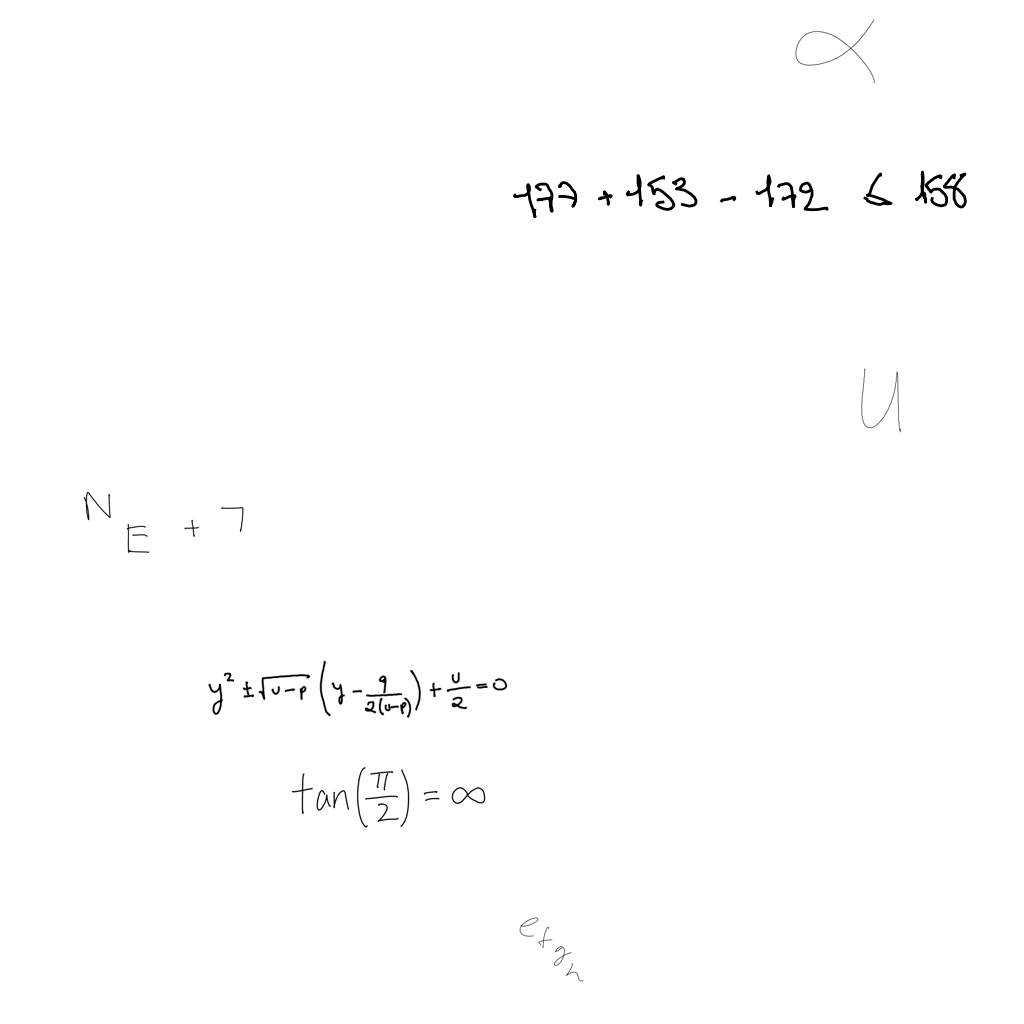 α
177 + 153 - 172 ≤ 158
u
N_E + 7
y² ± √(u-p) (y - q/(2(u-p))) + u/2 = 0
tan(π/2) = ∞
e_{f_{g_h}}